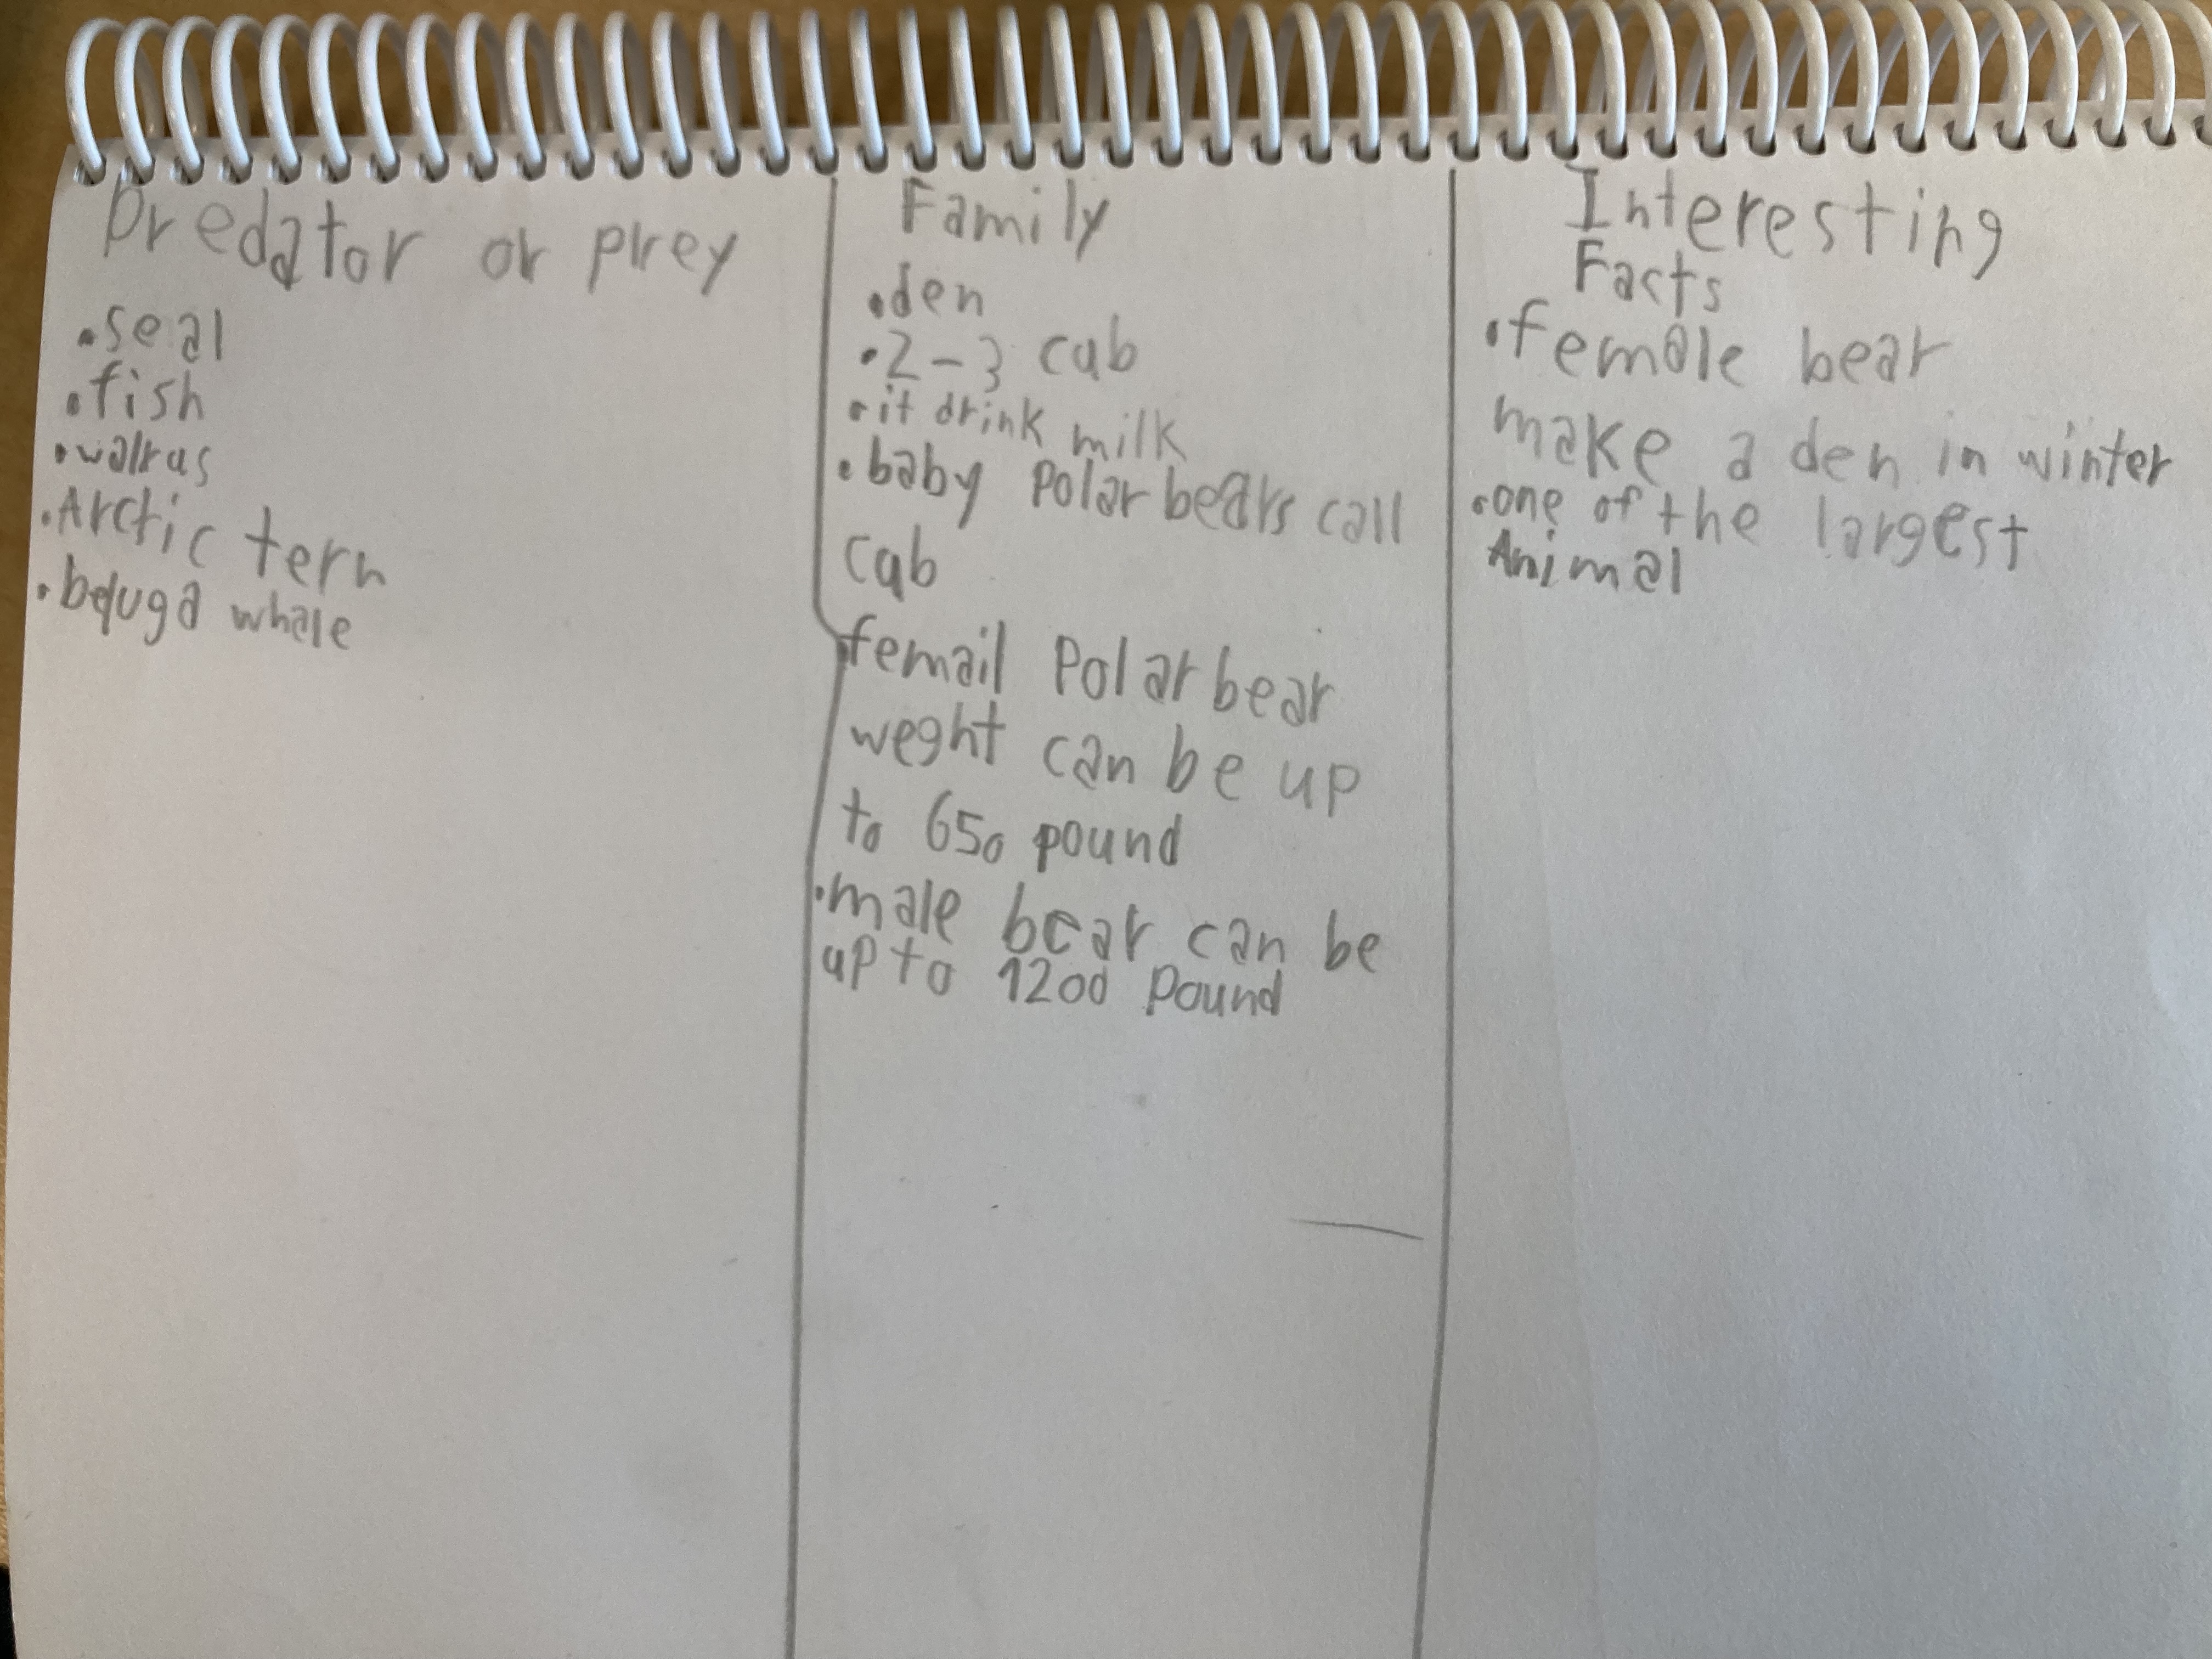 Predator or prey
•seal
•fish
•walrus
•Arctic tern
•beluga whale
Family
•den
•2-3 cub
•it drink milk
•baby Polar bears call
cub
•femail Polar bear
weght can be up
to 650 pound
•male bear can be
up to 1200 Pound
Interesting
Facts
•female bear
make a den in winter
•one of the largest
Animal